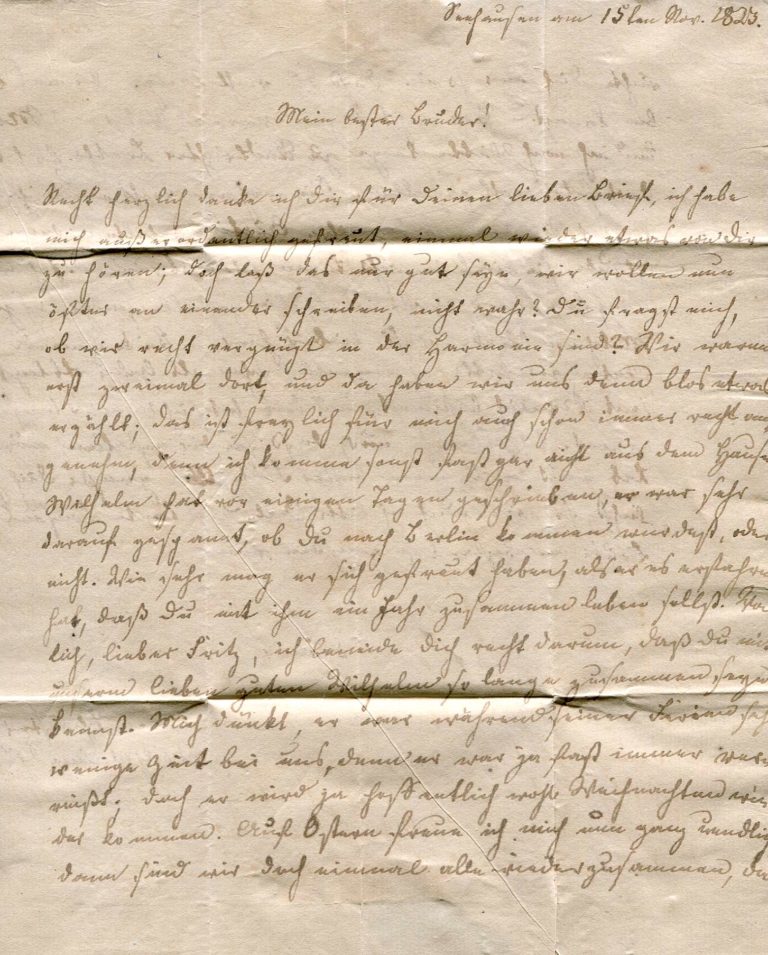 Seehausen am 15ten Nov. 1823.
Mein bester Bruder!
Recht herzlich danke ich dir für Deinen lieben Brief, ich habe
mich außerordentlich gefreut, einmal wieder etwas von dir
zu hören; doch laß das nur gut seyn, wir wollen nun
öfter an einander schreiben, nicht wahr? Du fragst mich,
ob wir recht vergnügt in der Harmonie sind? Wir waren
erst zweimal dort, und da haben wir uns denn blos etwas
erzählt; das ist freylich für mich auch schon immer recht an,
genehm, denn ich komme sonst fast gar nicht aus dem Hause
Wilhelm hat vor einigen Tagen geschrieben, er war sehr
darauf gespannt, ob Du nach Berlin kommen würdest, oder
nicht. Wie sehr mag er sich gefreut haben, als er es erfahren
hat, daß Du mit ihm ein Jahr zusammen leben sollst.
lich, lieber Fritz, ich beneide Dich recht darum, daß du mit
unserm lieben guten Wilhelm so lange zusammen seyn
kannst. Mich dünkt, er war während seiner Ferien sehr
wenige Zeit bei uns, denn er war ja fast immer ver
reißt; doch er wird ja hoffentlich wohl Weihnachten wie
der kommen. Auf Ostern freue ich mich nun ganz unendlich
dann sind wir doch einmal alle wieder zusammen,